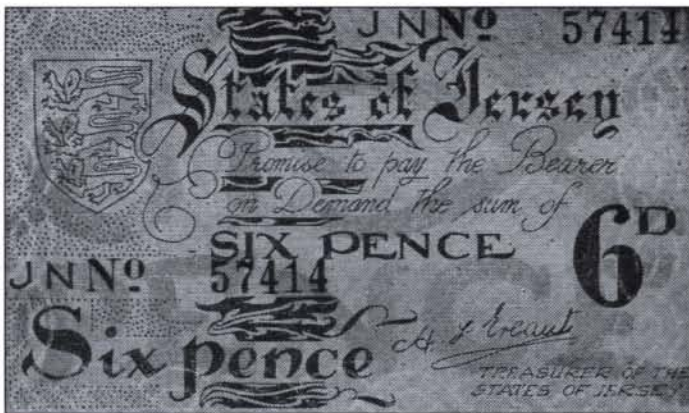 JN Nº 57414
States of Jersey
Promise to pay the Bearer
on Demand the sum of
SIX PENCE
6D
JN Nº 57414
Six pence
H J Ereaut
TREASURER OF THE
STATES OF JERSEY